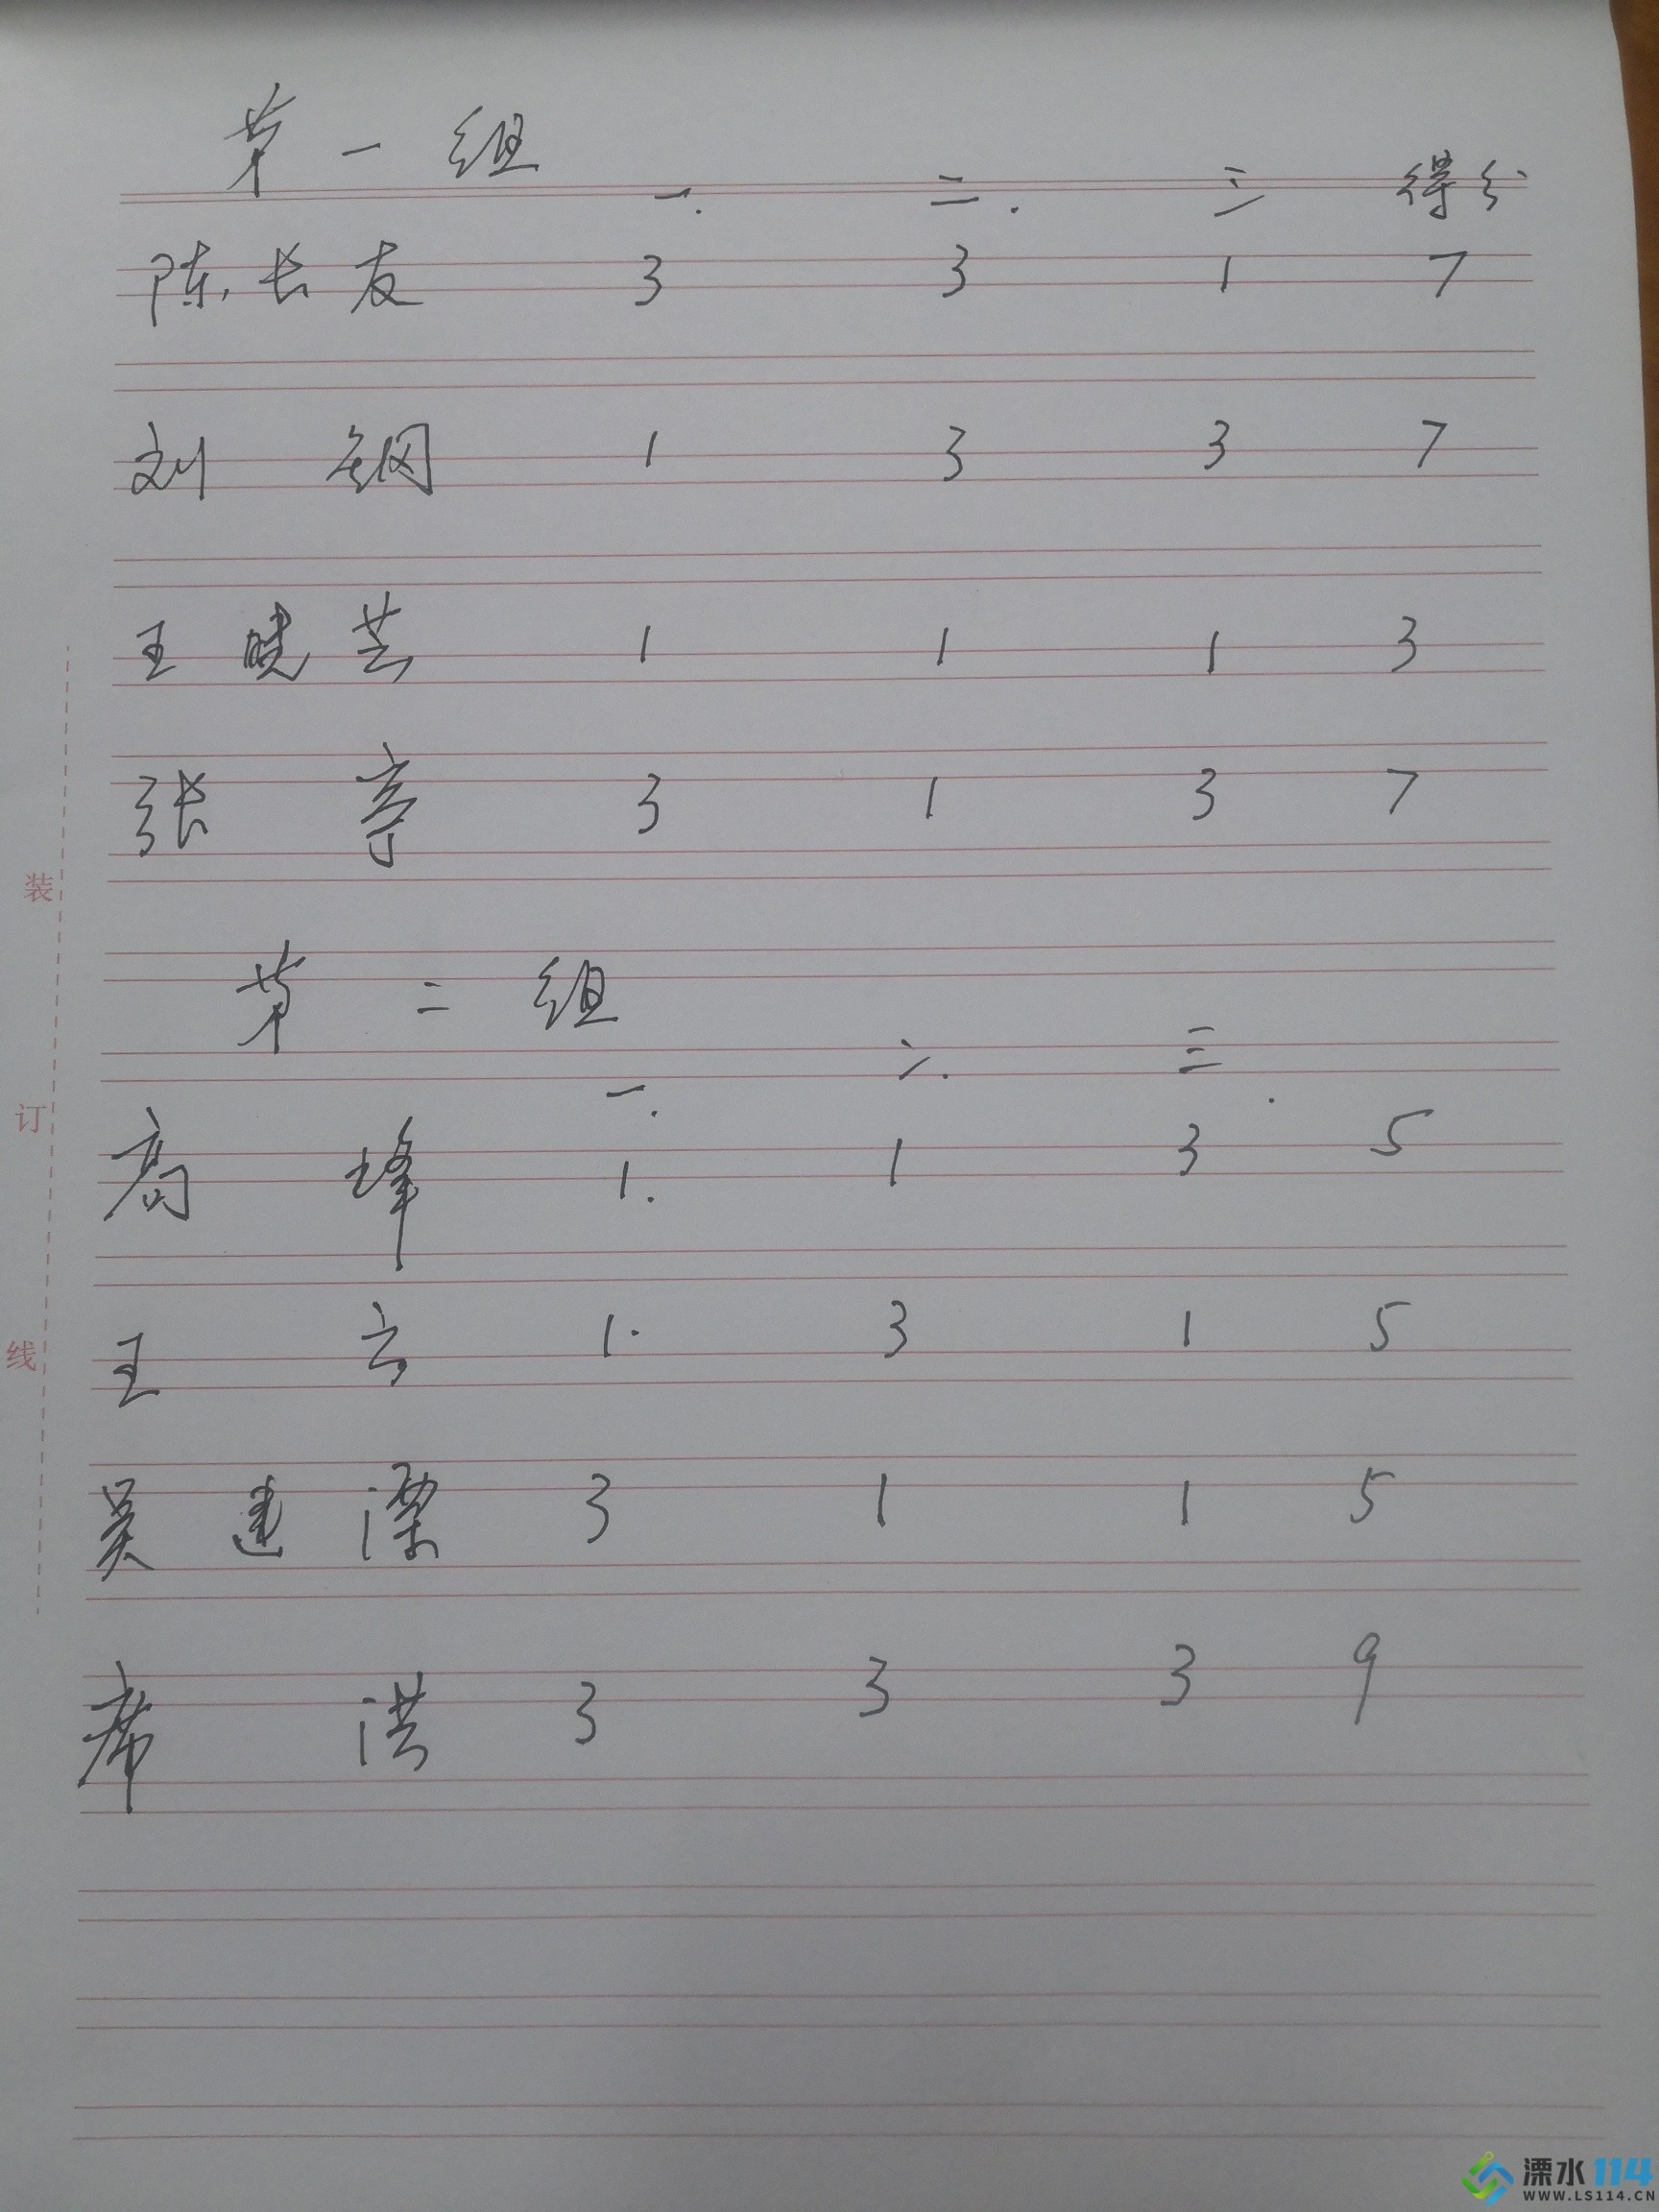 第一组
一. 二. 三 得分
陈长友 3 3 1 7
刘钢 1 3 3 7
王晓芸 1 1 1 3
张亭 3 1 3 7
第二组
一. 二. 三.
高峰 1. 1 3 5
王云 1. 3 1 5
吴建溧 3 1 1 5
席洪 3 3 3 9
装
订
线
溧水114
WWW.LS114.CN